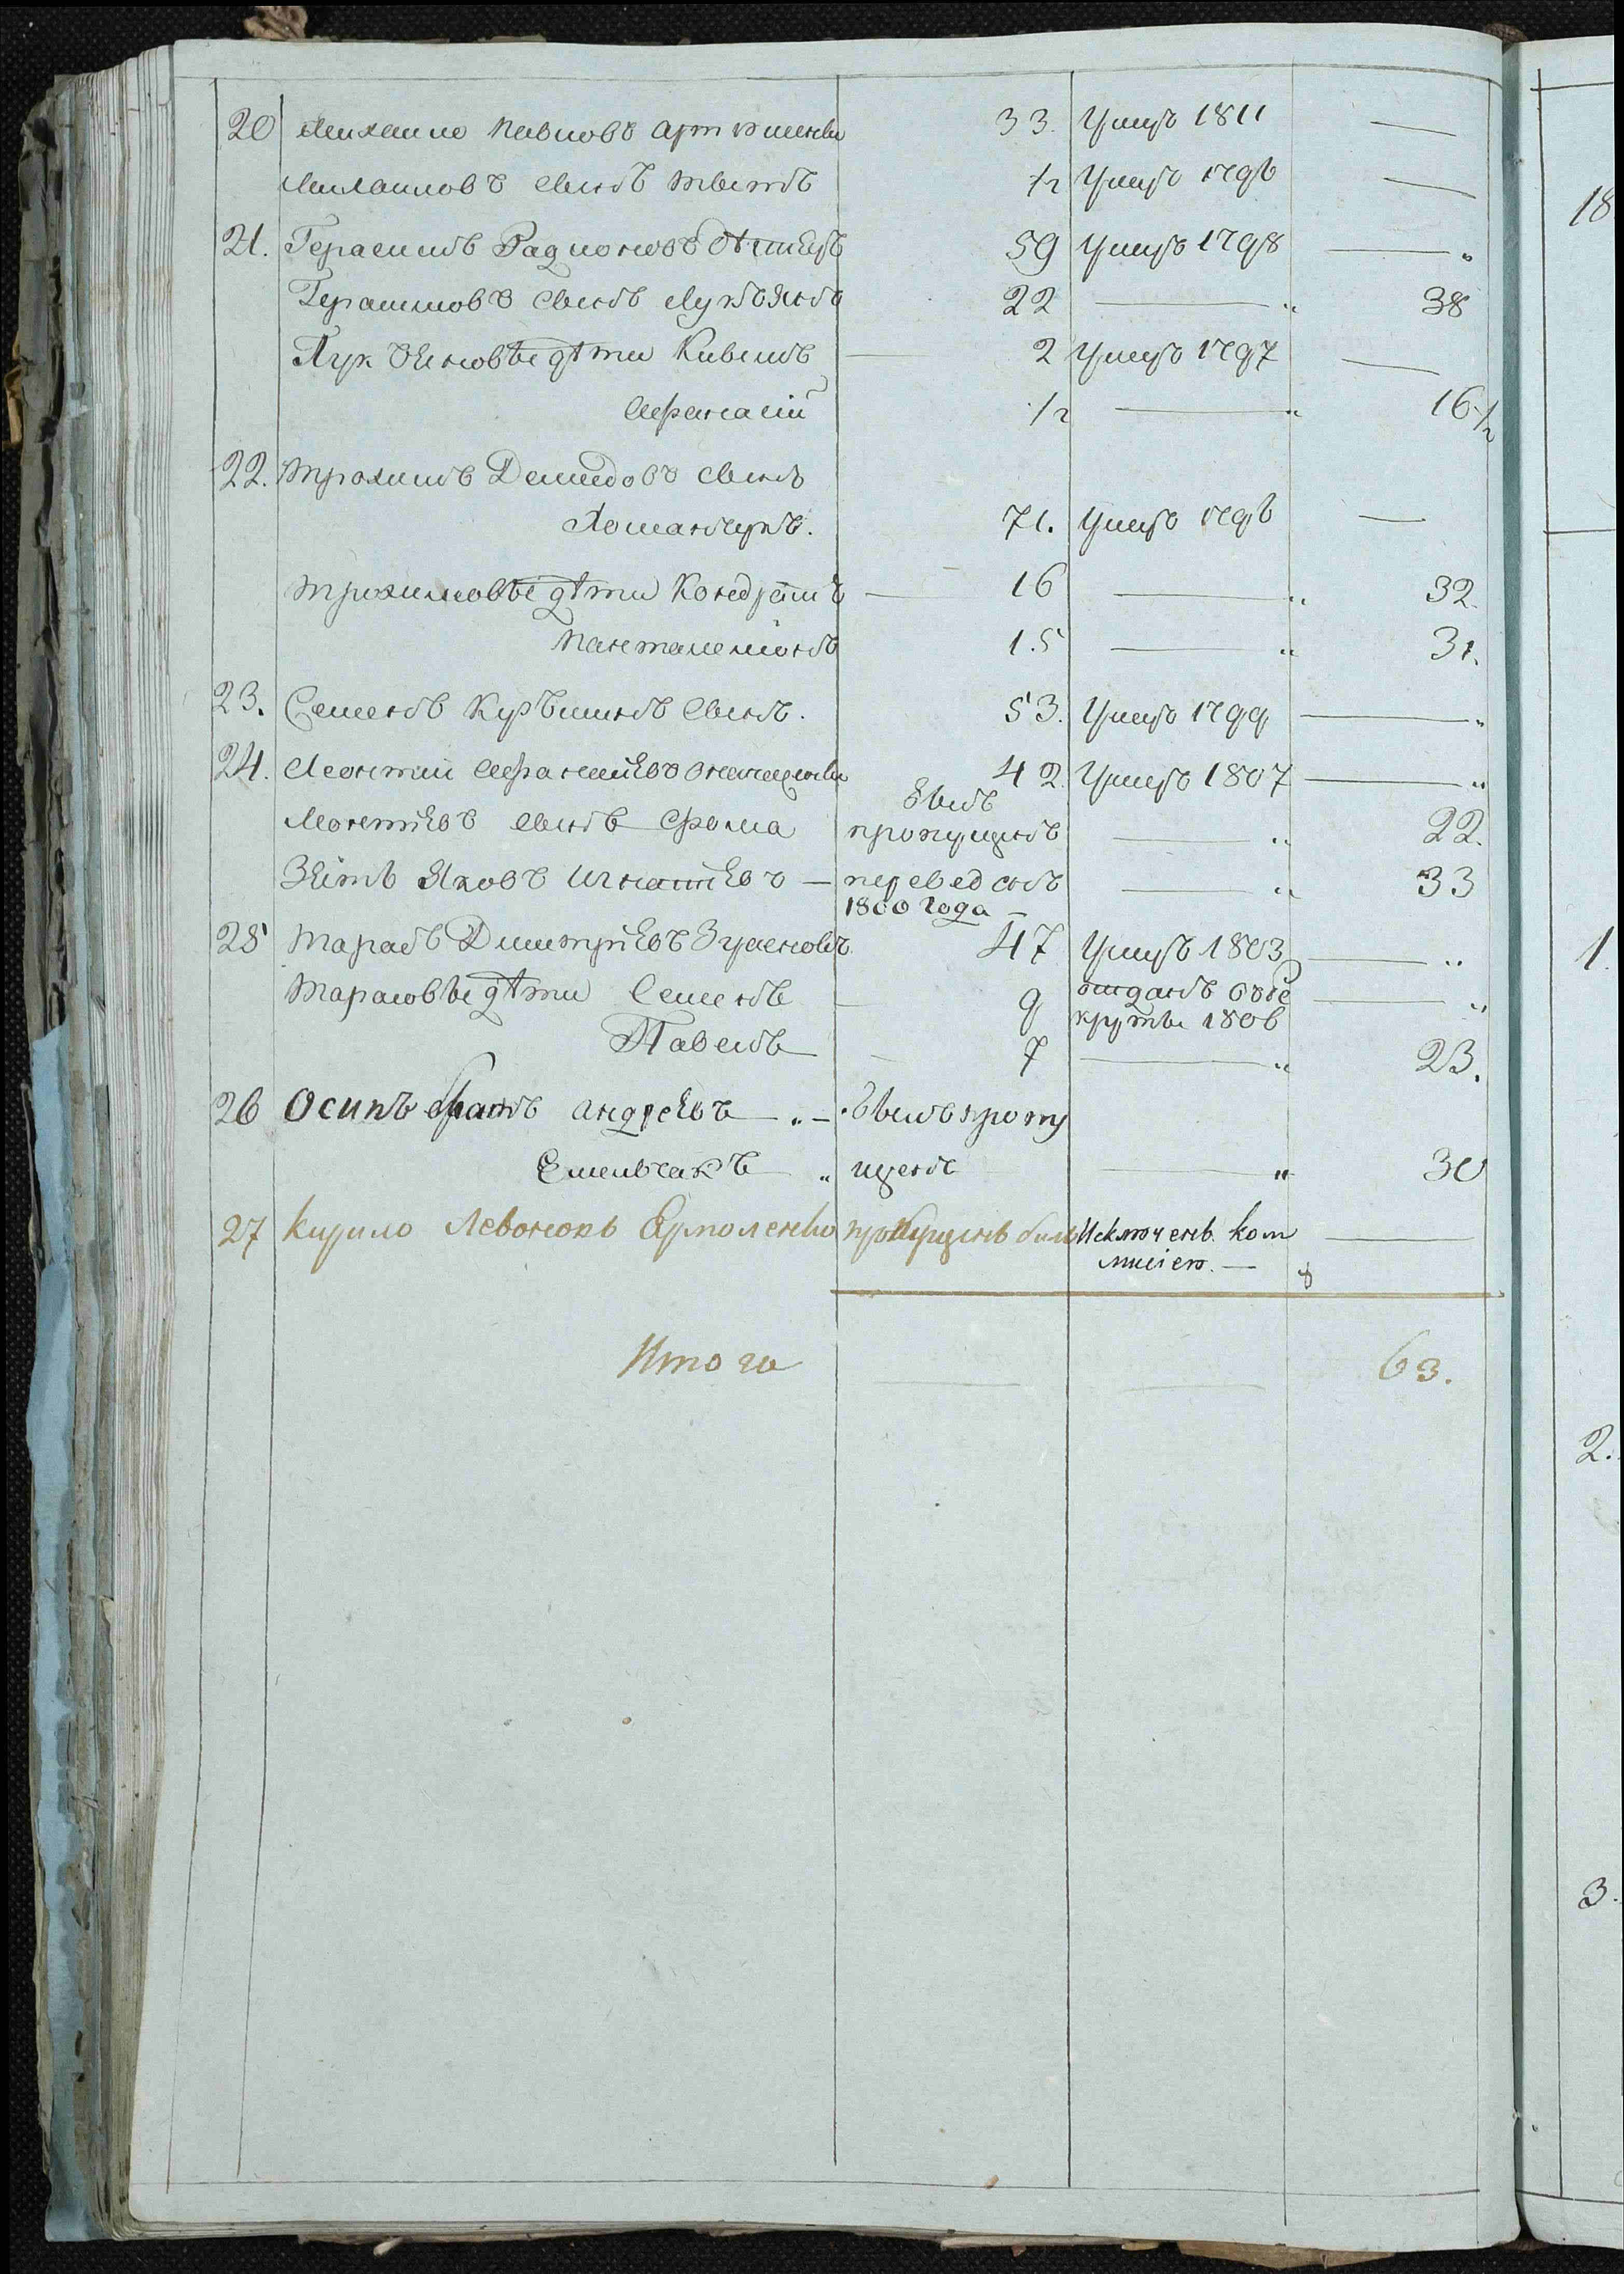 20 Михаило Павловъ Артюшенко 33. Умеръ 1811 —
Михаиловъ сынъ Титъ 1/2 Умеръ 1796 —
21. Герасимъ Радионовъ 59 Умеръ 1798 — "
Герасимовъ сынъ Лукьянъ 22 — " 38
Лукьяновы дѣти 2 Умеръ 1797 —
Афанасій 1/2 — " 16 1/2
22. Трохимъ Демидовъ сынъ
71. Умеръ 1796 —
Трохимовы дѣти Кондратъ — 16 — " 32.
Пантелемонъ 15 — " 31.
23. Семенъ сынъ. 53. Умеръ 1799 — "
24. Леонтий 42. Умеръ 1807 — "
былъ
Леонтіевъ сынъ Фома пропущенъ — " 22.
Зять Яковъ Игнатіевъ — переведенъ — " 33
1800 года —
25 Тарасъ Дмитріевъ 47 Умеръ 1803 — "
Тарасовы дѣти Семенъ — 9 отданъ въ ре
круты 1806 — "
Павелъ — 7 — " 23.
26 Осипъ Андреевъ " — былъ пропу
Емельчакъ " щенъ — " 30
27 Кирило Левоновъ Ермоленко пропущенъ былъ Исключенъ ком —
мисіею. —
Итого — — 63.
18
1.
2.
3.